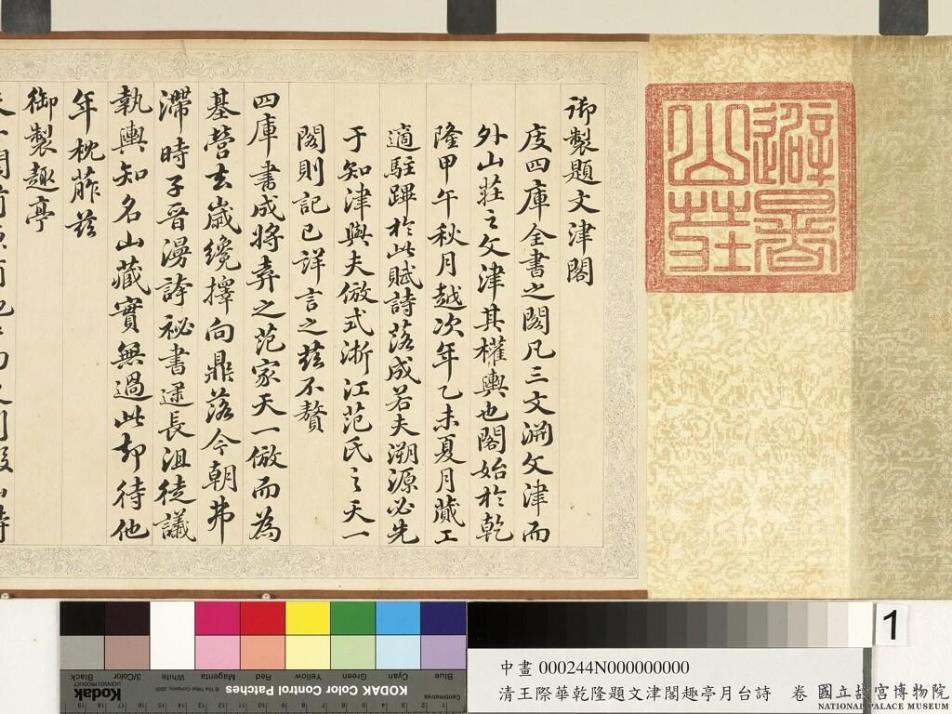 避暑
山莊
御製題文津閣
庋四庫全書之閣凡三文淵文津而
外山莊之文津其權輿也閣始於乾
隆甲午秋月越次年乙未夏月蕆工
適駐蹕於此賦詩落成若夫溯源必先
于知津與夫倣式浙江范氏之天一
閣則記已詳言之茲不贅
四庫書成將弆之范家天一倣而為
基營去歲纔擇向鼎落今朝弗
滯時子晉漫誇祕書逮長沮徒議
執輿知名山藏實無過此却待他
年枕葄茲
御製趣亭
1
Blue Cyan Green Yellow Red Magenta White 3/Color Black
KODAK Color Control Patches
Kodak
中畫 000244N000000000
清王際華乾隆題文津閣趣亭月台詩 卷
國立故宮博物院
NATIONAL PALACE MUSEUM